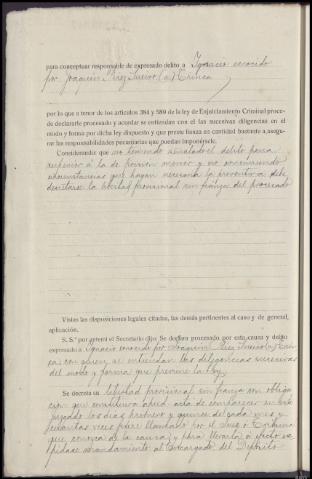 para conceptuar responsable de expresado delito a Ignacio conocido
por Joaquin Perez (a)
por lo que a tenor de los artículos 384 y 589 de la ley de Enjuiciamiento Criminal proce-
de declararle procesado y acordar se entiendan con él las sucesivas diligencias en el
modo y forma por dicha ley dispuesto y que preste fianza en cantidad bastante a asegu-
rar las responsabilidades pecuniarias que puedan imponérsele.
Considerando: que no teniendo señalado el delito pena
superior á la de prision menor y no concurriendo
circunstancias que hagan necesaria la preventiva debe
decretarse la libertad provisional sin fianza del procesado
Vistas las disposiciones legales citadas, las demás pertinentes al caso y de general,
aplicación.
S. S.ª por ante mí el Secretario dijo: Se declara procesado por esta causa y delito
expresado a Ignacio conocido por Joaquin Perez (a)
con quien se entiendan las diligencias sucesivas
del modo y forma que previene la ley.
Se decreta su libertad provisional sin fianza con obliga
cion que constituirá apud acta de comparecer en este
juzgado los dias primero y quince de cada mes y
cuantas veces fuere llamado por el Juez ó Tribunal
que conozca de la causa; y para llevarla á efecto ex
pidase mandamiento al Encargado del Depósito